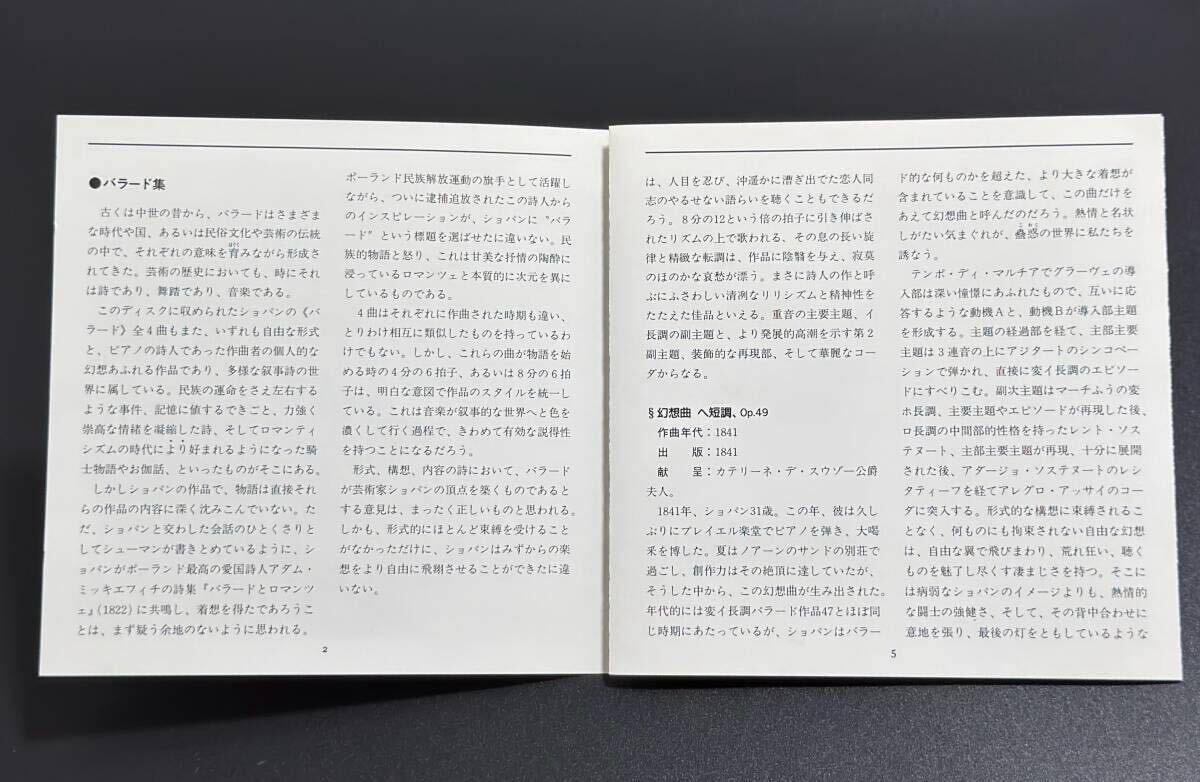 ●バラード集
古くは中世の昔から、バラードはさまざま
な時代や国、あるいは民俗文化や芸術の伝統
の中で、それぞれの意味を育みながら形成さ
れてきた。芸術の歴史においても、時にそれ
は詩であり、舞踏であり、音楽である。
このディスクに収められたショパンの《バ
ラード》全4曲もまた、いずれも自由な形式
と、ピアノの詩人であった作曲者の個人的な
幻想あふれる作品であり、多様な叙事詩の世
界に属している。民族の運命をさえ左右する
ような事件、記憶に値するできごと、力強く
崇高な情緒を凝縮した詩、そしてロマンティ
シズムの時代により好まれるようになった騎
士物語やお伽話、といったものがそこにある。
しかしショパンの作品で、物語は直接それ
らの作品の内容に深く沈みこんでいない。た
だ、ショパンと交わした会話のひとくさりと
してシューマンが書きとめているように、シ
ョパンがポーランド最高の愛国詩人アダム・
ミッキエフィチの詩集『バラードとロマンツ
ェ』(1822)に共鳴し、着想を得たであろうこ
とは、まず疑う余地のないように思われる。
ポーランド民族解放運動の旗手として活躍し
ながら、ついに逮捕追放されたこの詩人から
のインスピレーションが、ショパンに“バラ
ード”という標題を選ばせたに違いない。民
族的物語と怒り、これは甘美な抒情の陶酔に
浸っているロマンツェと本質的に次元を異に
しているものである。
4曲はそれぞれに作曲された時期も違い、
とりわけ相互に類似したものを持っているわ
けでもない。しかし、これらの曲が物語を始
める時の4分の6拍子、あるいは8分の6拍
子は、明白な意図で作品のスタイルを統一し
ている。これは音楽が叙事的な世界へと色を
濃くして行く過程で、きわめて有効な説得性
を持つことになるだろう。
形式、構想、内容の詩において、バラード
が芸術家ショパンの頂点を築くものであると
する意見は、まったく正しいものと思われる。
しかも、形式的にほとんど束縛を受けること
がなかっただけに、ショパンはみずからの楽
想をより自由に飛翔させることができたに違
いない。
2
は、人目を忍び、沖遥かに漕ぎ出でた恋人同
志のやるせない語らいを聴くこともできるだ
ろう。8分の12という倍の拍子に引き伸ばさ
れたリズムの上で歌われる、その息の長い旋
律と精緻な転調は、作品に陰翳を与え、寂寞
のほのかな哀愁が漂う。まさに詩人の作と呼
ぶにふさわしい清冽なリリシズムと精神性を
たたえた佳品といえる。重音の主要主題、イ
長調の副主題と、より発展的高潮を示す第2
副主題、装飾的な再現部、そして華麗なコー
ダからなる。
§幻想曲 ヘ短調、Op.49
作曲年代:1841
出 版:1841
献 呈:カテリーネ・デ・スウゾー公爵
夫人。
1841年、ショパン31歳。この年、彼は久し
ぶりにプレイエル楽堂でピアノを弾き、大喝
采を博した。夏はノアーンのサンドの別荘で
過ごし、創作力はその絶頂に達していたが、
そうした中から、この幻想曲が生み出された。
年代的には変イ長調バラード作品47とほぼ同
じ時期にあたっているが、ショパンはバラー
ド的な何ものかを超えた、より大きな着想が
含まれていることを意識して、この曲だけを
あえて幻想曲と呼んだのだろう。熱情と名状
しがたい気まぐれが、蠱惑の世界に私たちを
誘なう。
テンポ・ディ・マルチアでグラーヴェの導
入部は深い憧憬にあふれたもので、互いに応
答するような動機Aと、動機Bが導入部主題
を形成する。主題の経過部を経て、主部主要
主題は3連音の上にアジタートのシンコペー
ションで弾かれ、直接に変イ長調のエピソー
ドにすべりこむ。副次主題はマーチふうの変
ホ長調、主要主題やエピソードが再現した後、
ロ長調の中間部的性格を持ったレント・ソス
テヌート、主部主要主題が再現、十分に展開
された後、アダージョ・ソステヌートのレシ
タティーフを経てアレグロ・アッサイのコー
ダに突入する。形式的な構想に束縛されるこ
となく、何ものにも拘束されない自由な幻想
は、自由な翼で飛びまわり、荒れ狂い、聴く
ものを魅了し尽くす凄まじさを持つ。そこに
は病弱なショパンのイメージよりも、熱情的
な闘士の強健さ、そして、その背中合わせに
意地を張り、最後の灯をともしているような
5